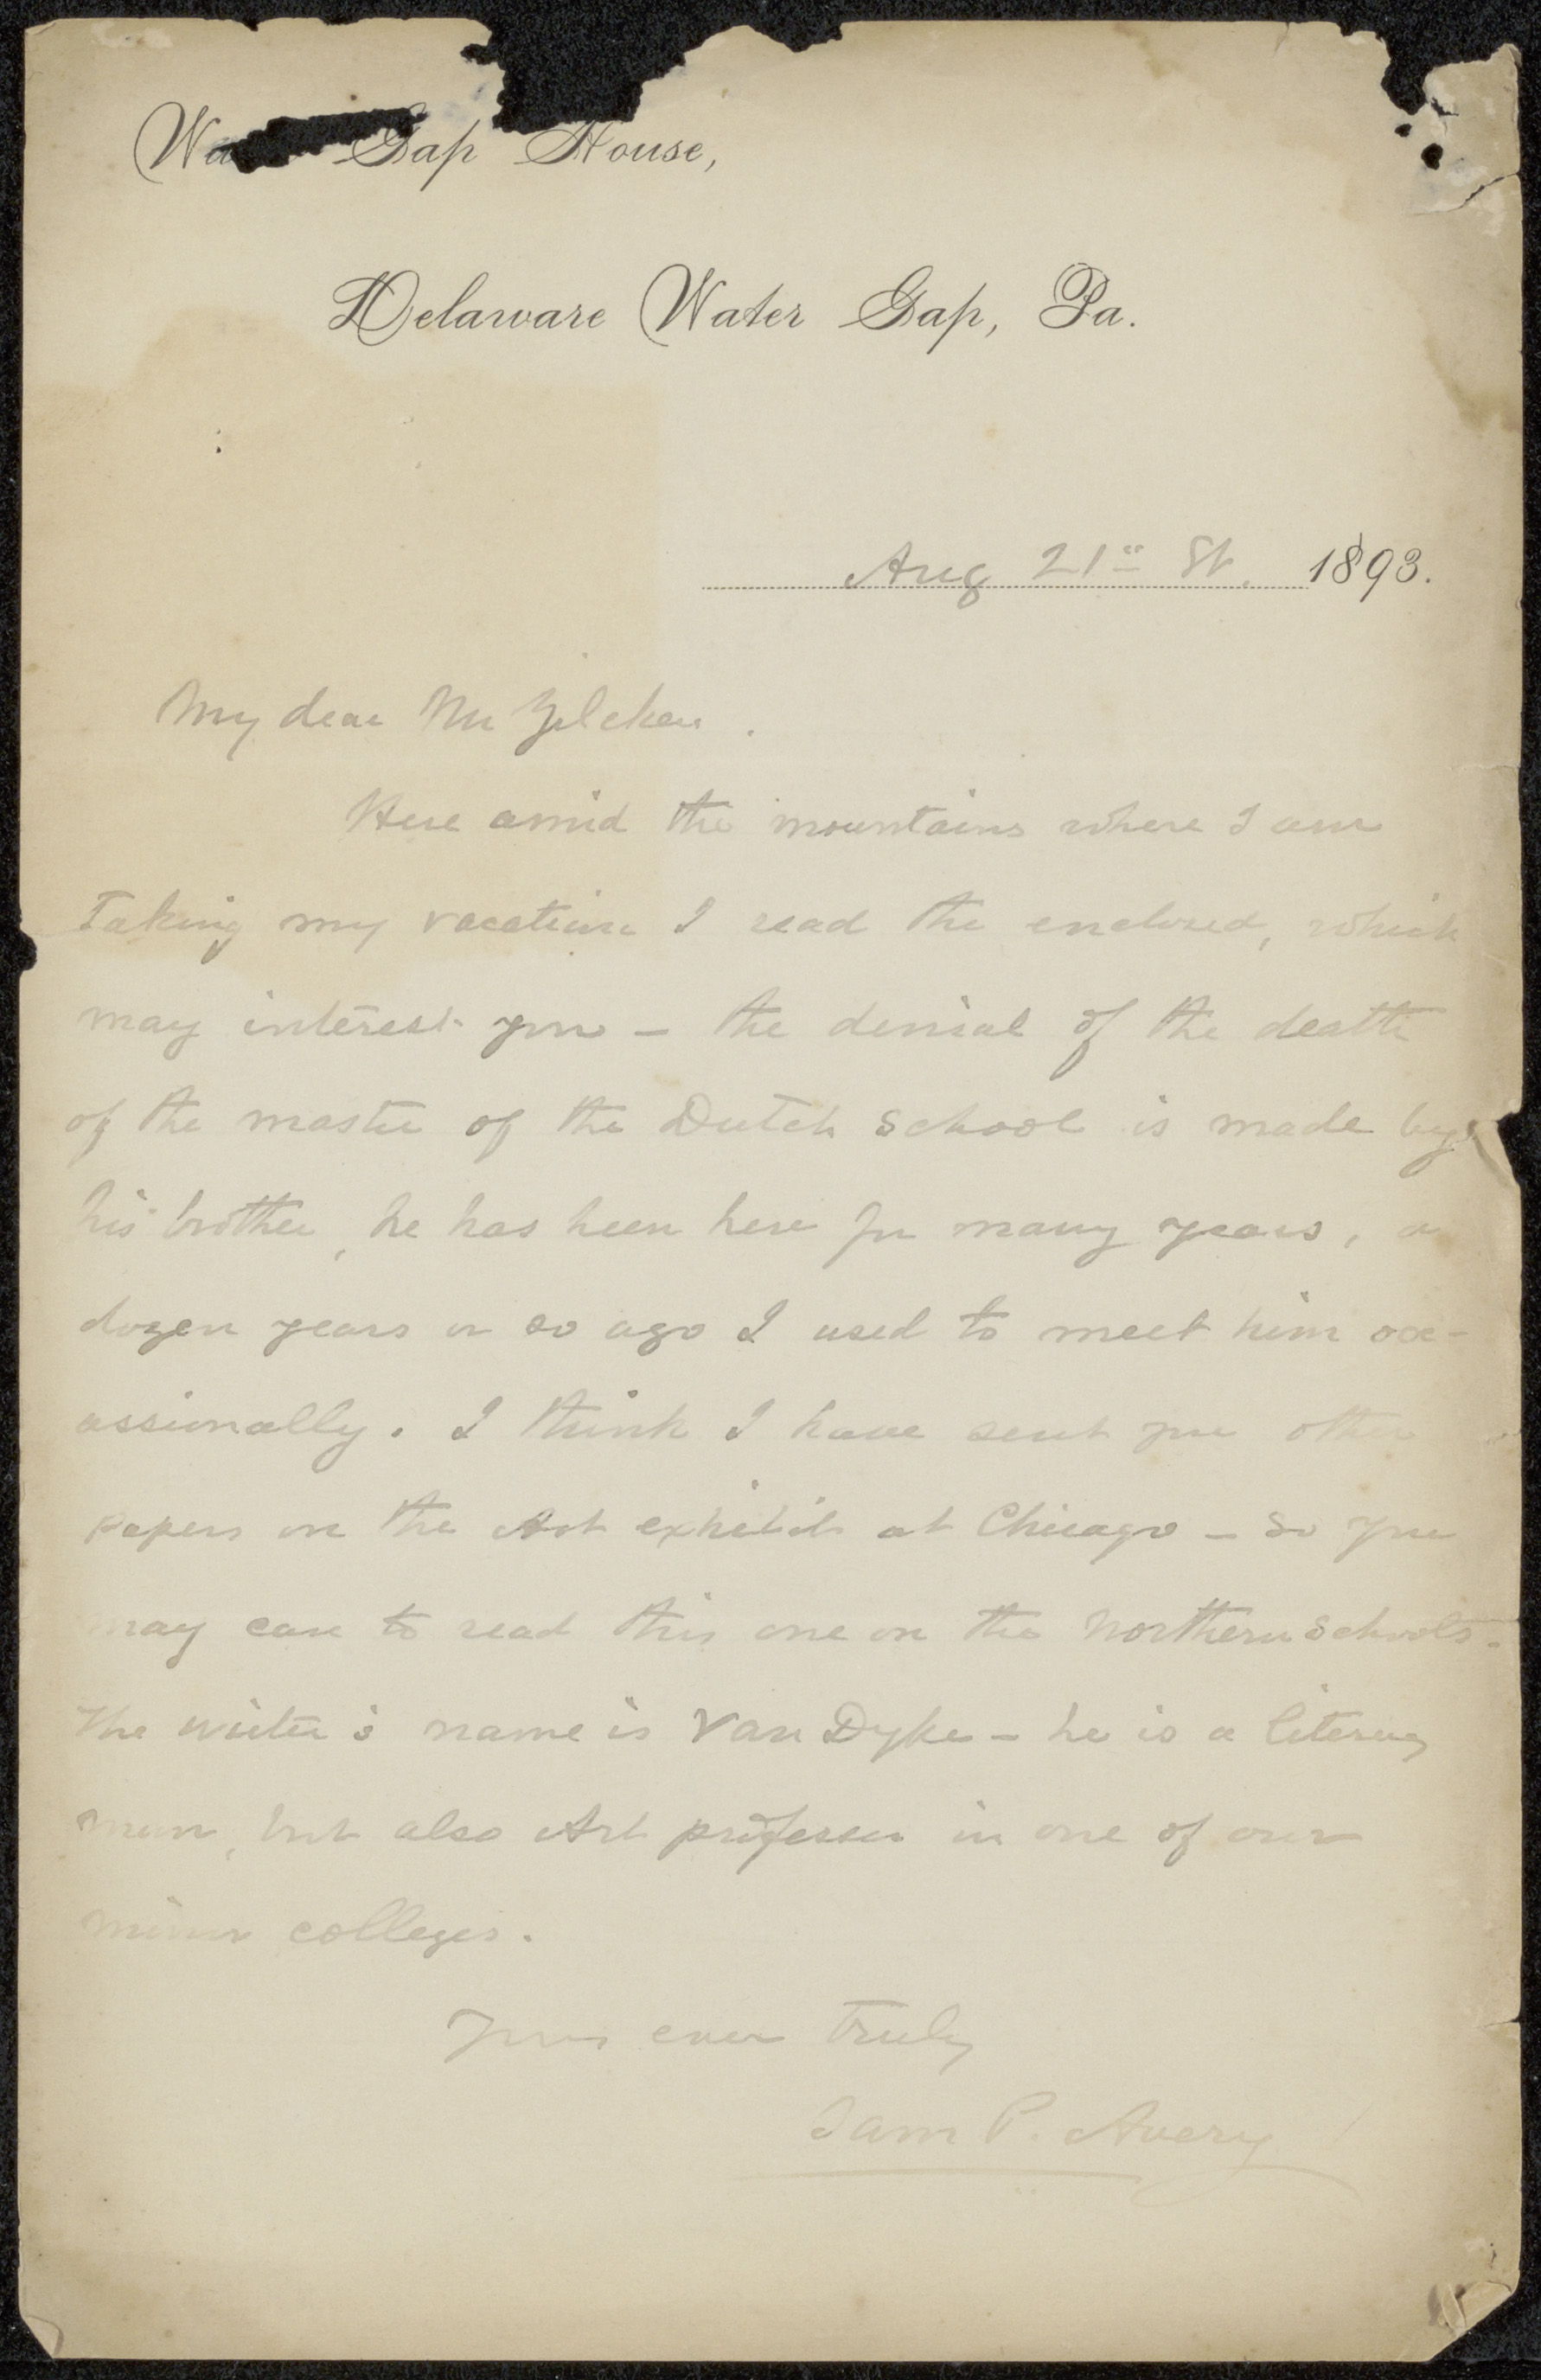 Wa Gap House,
Delaware Water Gap, Pa.
Aug 21st 1893.
My dear Mr Zilcken.
Here amid the mountains where I am
Taking my vacation I read the enclosed, which
may interest you – the denial of the death
of the master of the Dutch School is made by
his brother, he has been here for many years, a
dozen years or so ago I used to meet him occ-
assionally. I think I have sent you other
papers on the Art exhibits at Chicago – so you
may care to read this one on the Northern Schools.
The writer's name is Van Dyke – he is a literary
man, but also Art professor in one of our
minor colleges.
Yours ever Truly
Sam P. Avery